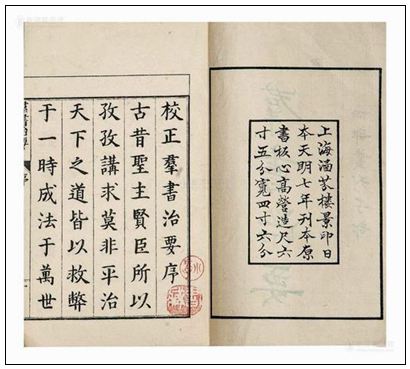 上海涵芬樓景印日
本天明七年刊本原
書板心高營造尺六
寸五分寬四寸六分
校正羣書治要序
古昔聖主賢臣所以
孜孜講求莫非平治
天下之道皆以救弊
于一時成法于萬世